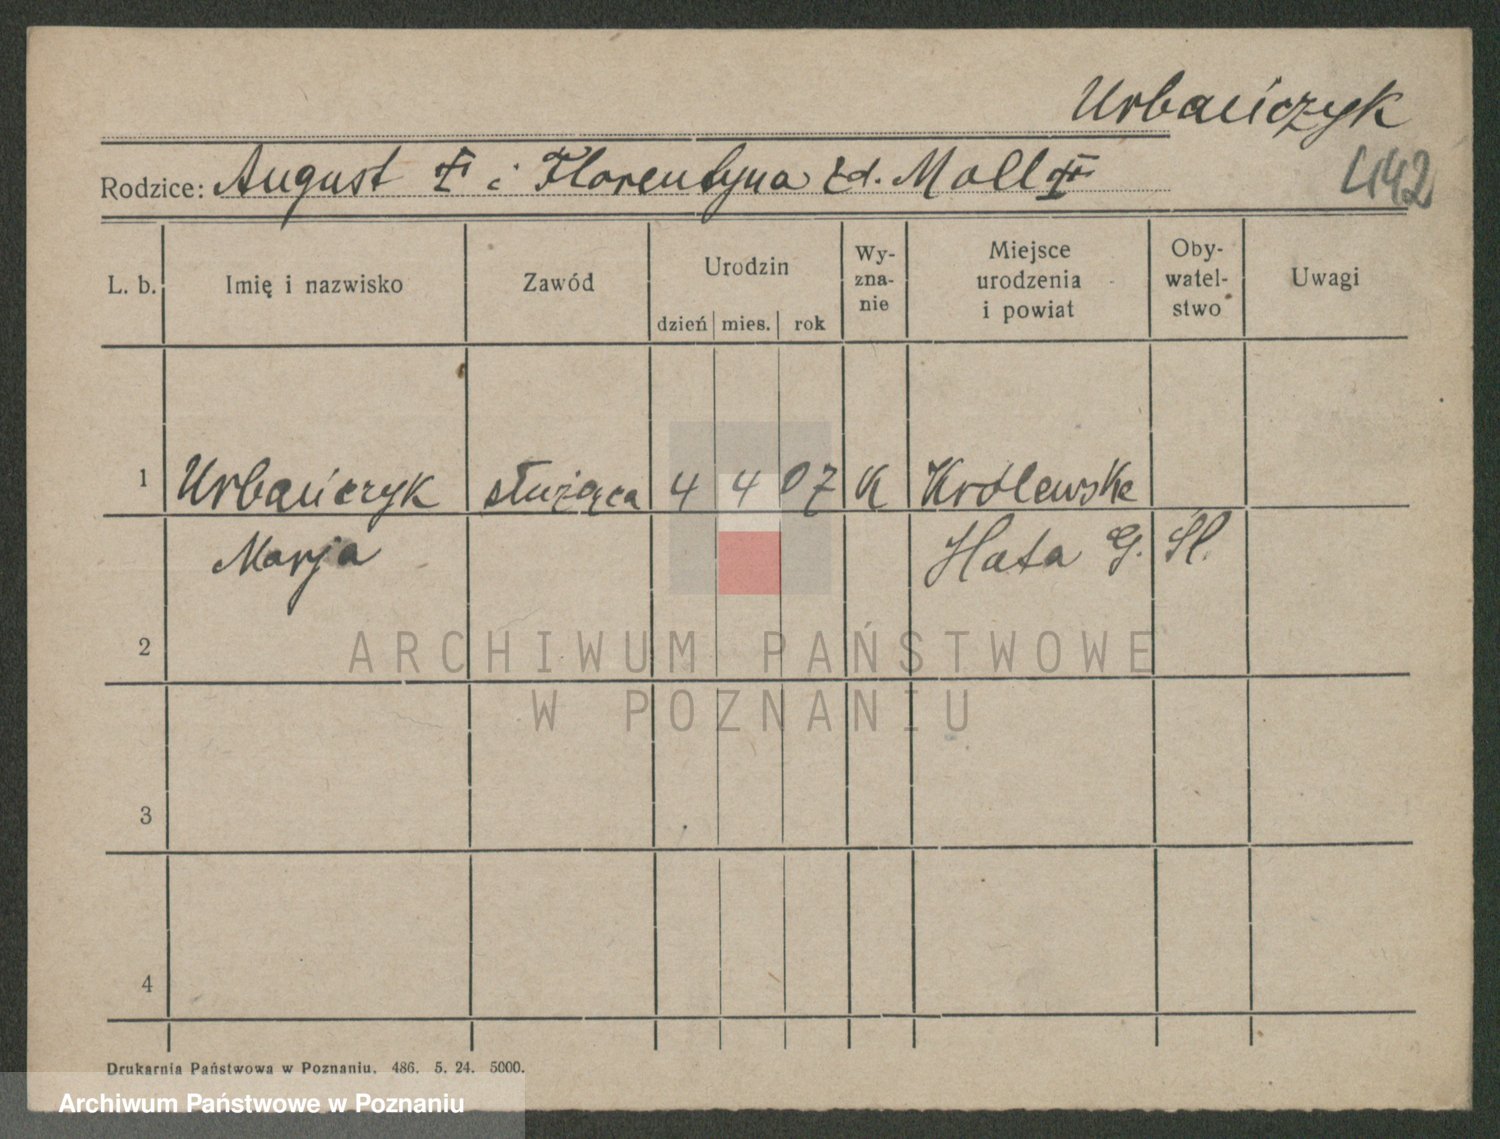 Urbańczyk
442
Rodzice: August ✝ i Florentyna zd. Moll ✝
L. b. Imię i nazwisko Zawód Urodzin dzień mies. rok Wy-zna-nie Miejsce urodzenia i powiat Oby-watel-stwo Uwagi
1 Urbańczyk służąca 4 4 07 K Królewska
Marja Hata G. Śl.
2
3
4
ARCHIWUM PAŃSTWOWE
W POZNANIU
Drukarnia Państwowa w Poznaniu. 486. 5. 24. 5000.
Archiwum Państwowe w Poznaniu